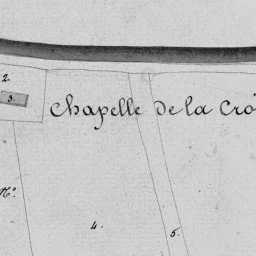 2.
3.
Chapelle De la Cro
N°.
4.
5.